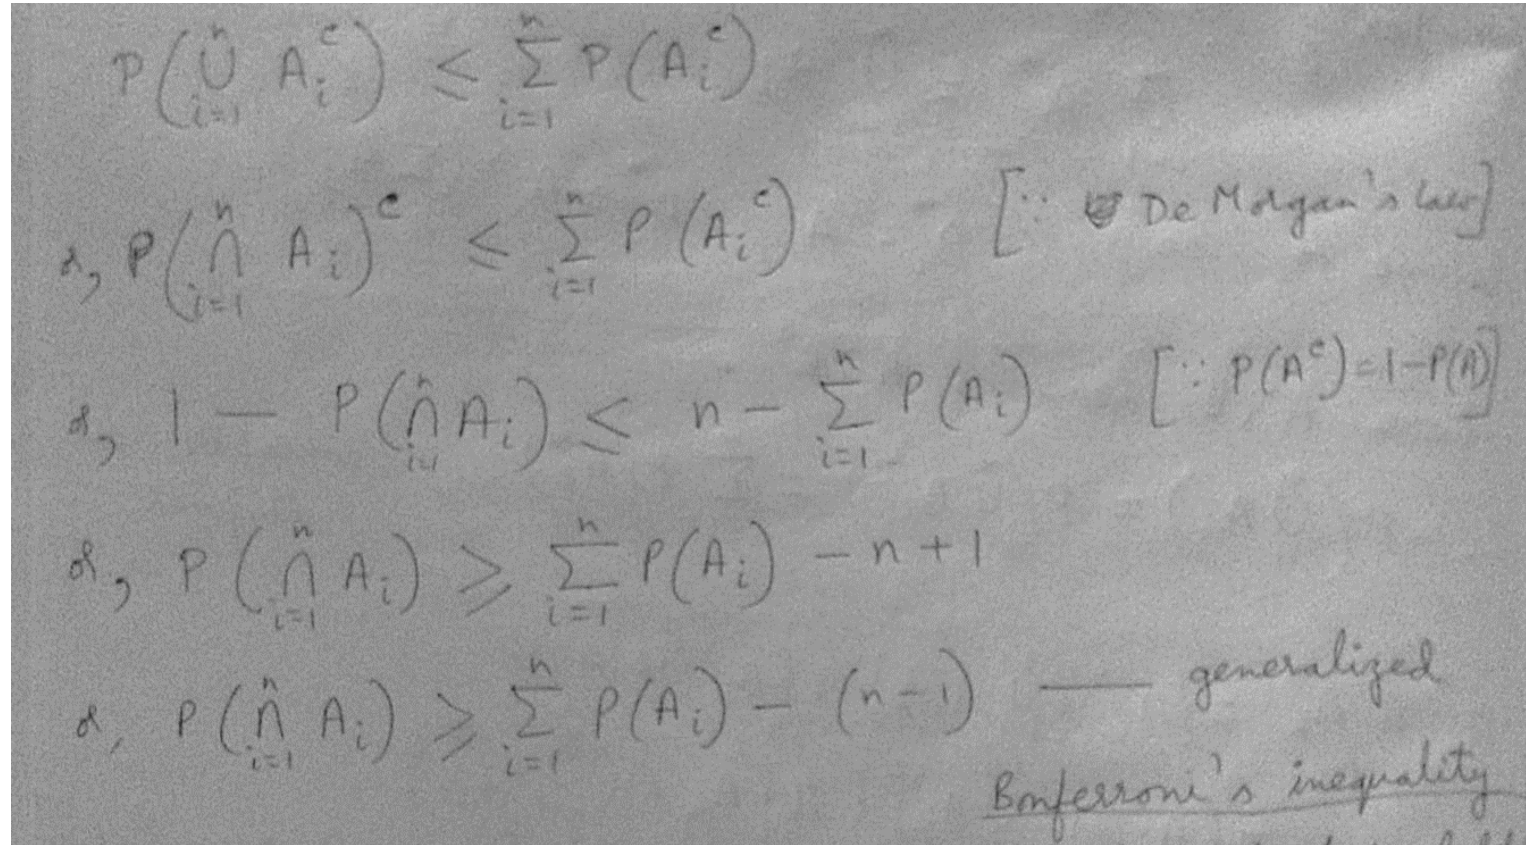 P(⋃_{i=1}^{n} A_i^c) ≤ Σ_{i=1}^{n} P(A_i^c)
or, P(⋂_{i=1}^{n} A_i)^c ≤ Σ_{i=1}^{n} P(A_i^c) [∵ De Morgan's law]
or, 1 — P(⋂_{i=1}^{n} A_i) ≤ n - Σ_{i=1}^{n} P(A_i) [∵ P(A^c) = 1-P(A)]
or, P(⋂_{i=1}^{n} A_i) ≥ Σ_{i=1}^{n} P(A_i) - n + 1
or, P(⋂_{i=1}^{n} A_i) ≥ Σ_{i=1}^{n} P(A_i) - (n-1) — generalized
Bonferroni's inequality